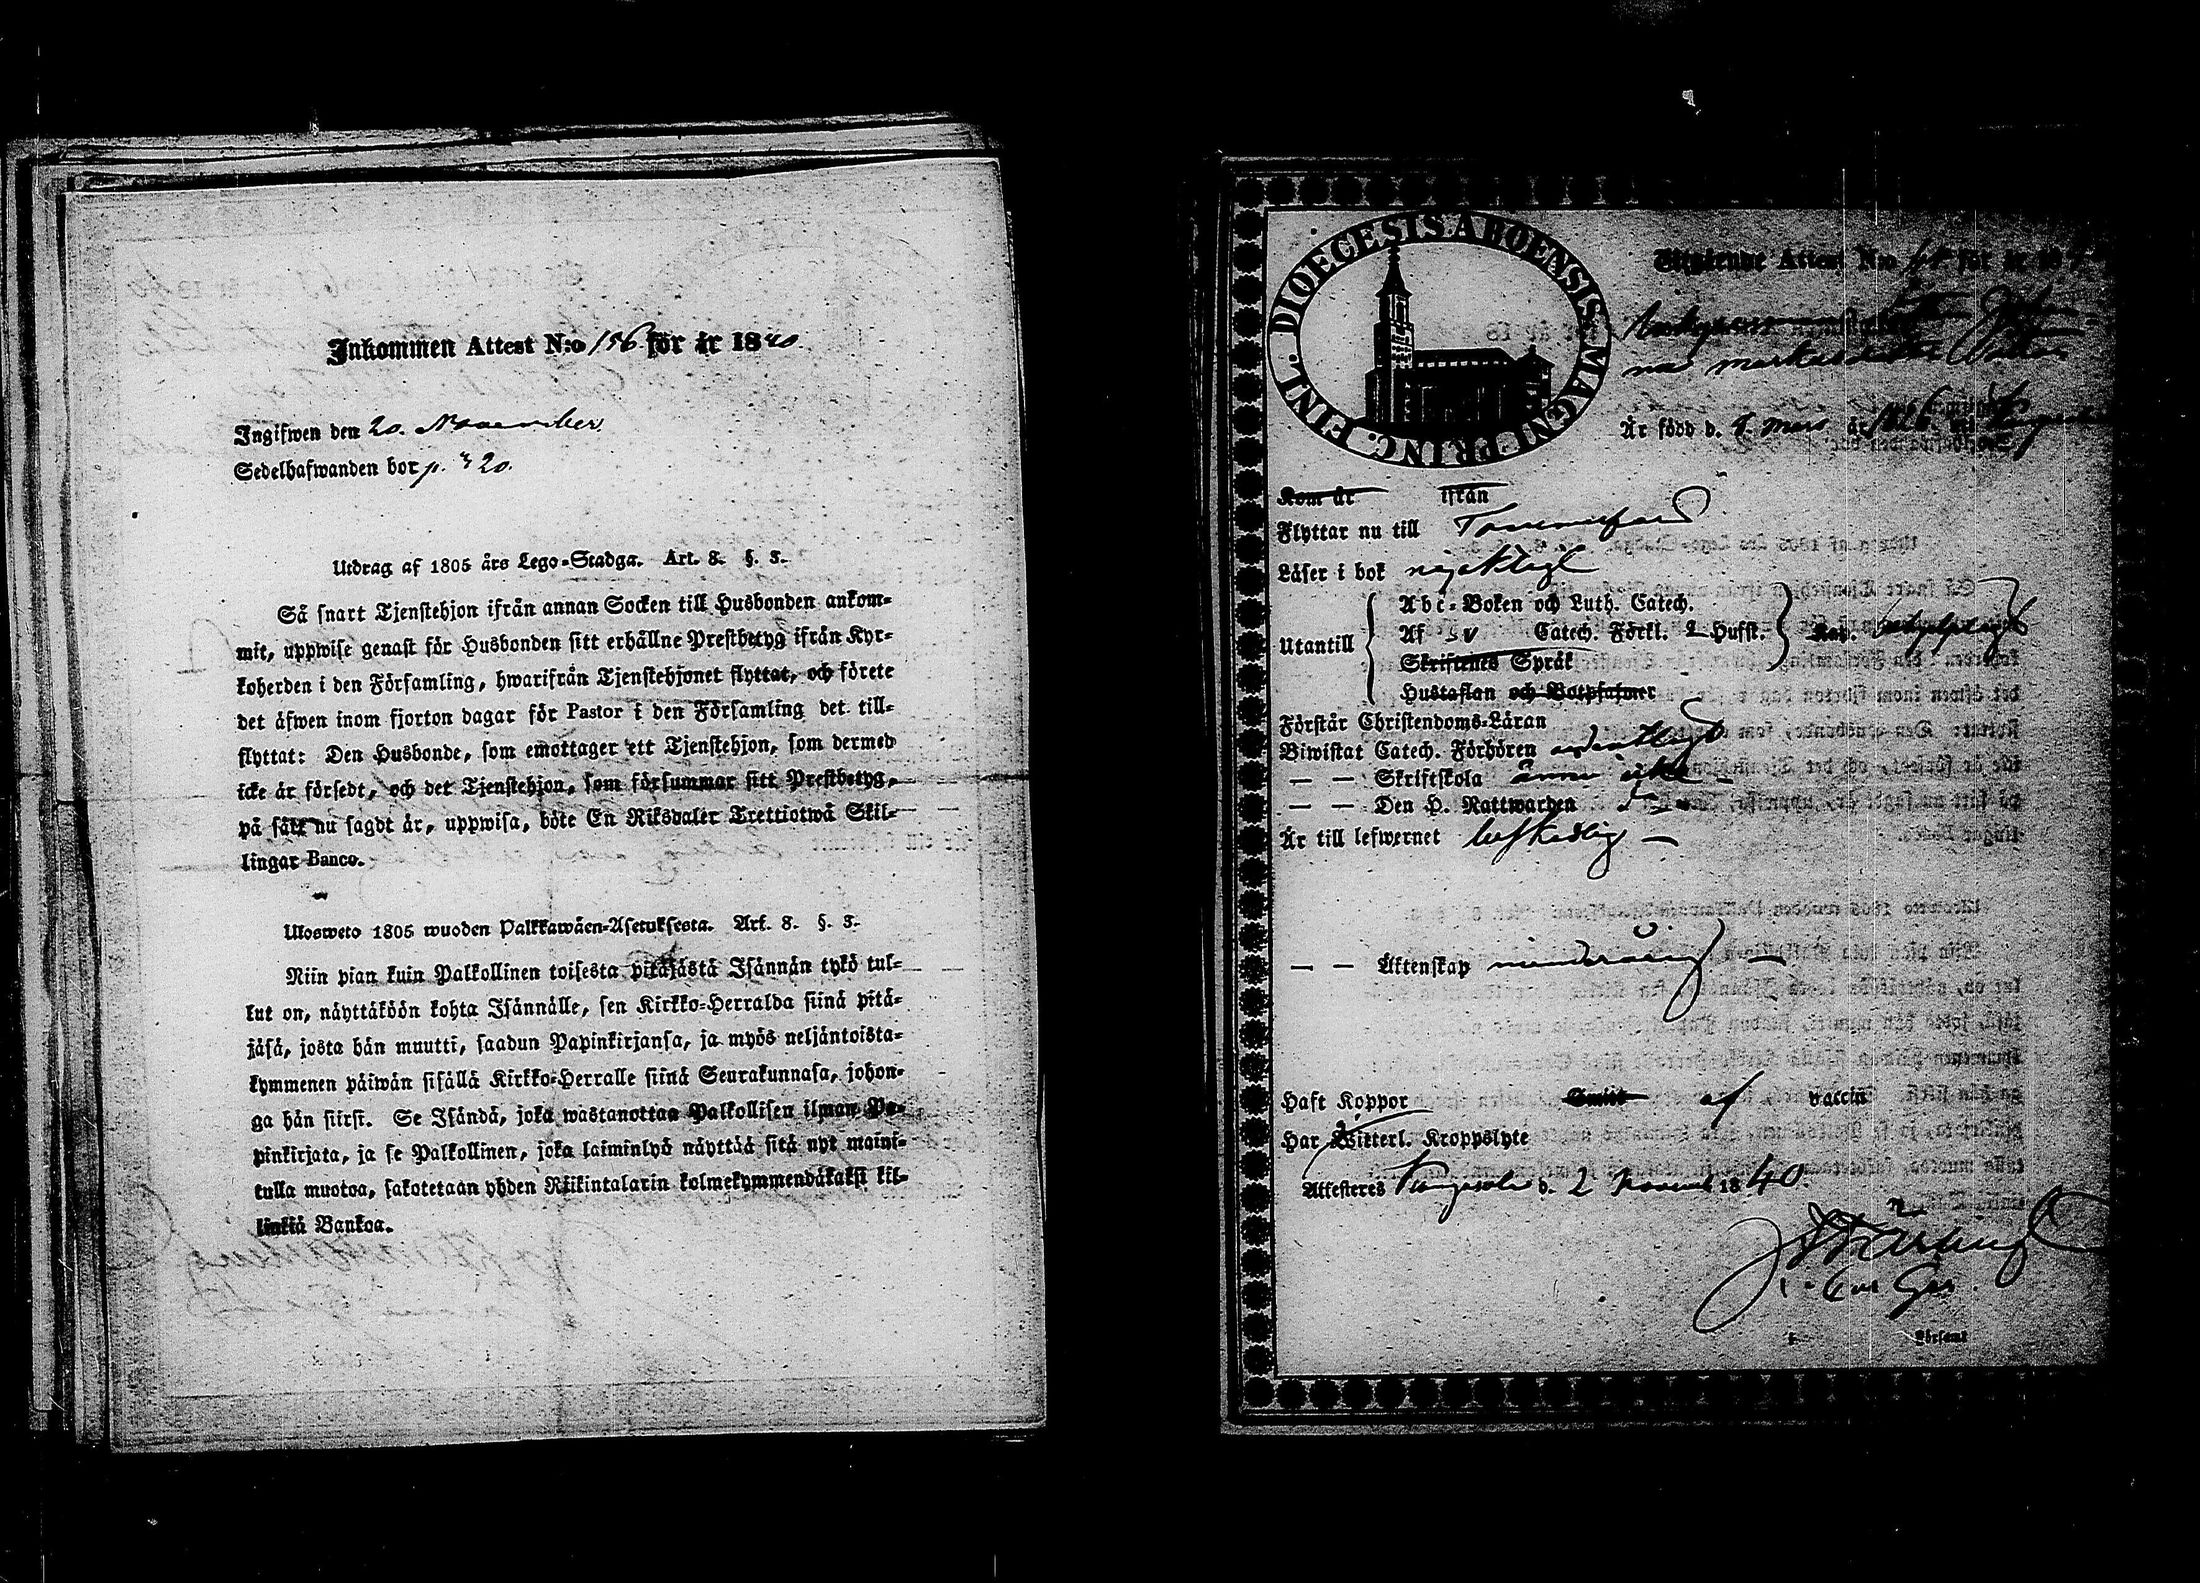 Inkommen Attest N:o 156 för år 1840.
Ingifwen den 20. November.
Sedelhafwanden bor p. 320.
Utdrag af 1805 års Lego-Stadga. Art. 8. §. 3.
Så snart Tjenstehjon ifrån annan Socken till Husbonden ankom-
mit, uppwise genast för Husbonden sitt erhållne Prestbetyg ifrån Kyr-
koherden i den Församling, hwarifrån Tjenstehjonet flyttat, och förete
det äfwen inom fjorton dagar för Pastor i den Församling det till-
flyttat: Den Husbonde, som emottager ett Tjenstehjon, som dermed
icke är försedt, och det Tjenstehjon, som försummar sitt Prestbetyg,
på sätt nu sagdt är, uppwisa, böte En Riksdaler Trettiotwå Skil-
lingar Banco.
Ulosweto 1805 wuoden Palkkawäen-Asetuksesta. Art. 8. §. 3.
Niin pian kuin Palkollinen toisesta pitäjästä Isännän tykö tul-
lut on, näyttäköön kohta Isännälle, sen Kirkko-Herralda siinä pitä-
jäsä, josta hän muutti, saadun Papinkirjansa, ja myös neljäntoista-
kymmenen päiwän sisällä Kirkko-Herralle siinä Seurakunnasa, johon-
ga hän siirsi. Se Isändä, joka wastanottaa Palkollisen ilman Pa-
pinkirjata, ja se Palkollinen, joka laiminlyö näyttää sitä nyt maini-
tulla muotoa, sakotetaan yhden Riikintalarin kolmekymmendäkaksi kil-
linkiä Bankoa.
FINL. DIOECESIS ABOENSIS MAGNI PRINC.
Utgående Attest N:o för år 18
na
Är född d. mars år 1826.
Kom år ifrån
Flyttar nu till Tammerfors
Läser i bok nöjaktigt
Abc-Boken och Luth. Catech.
Utantill Af Catech. Förkl. & Husst.
Skriftenes Språk
Hustaflan och Botpsalmer
Förstår Christendoms-Läran
Biwistat Catech. Förhören ordentligt
— — Skriftskola ännu icke
— — Den H. Nattwarden
Är till lefwernet beskedlig —
— — Äktenskap minderårig —
Haft Koppor Smitt af vaccin
Har Witterl. Kroppslyte
Attesteres Kangasala d. 2 November 1840.